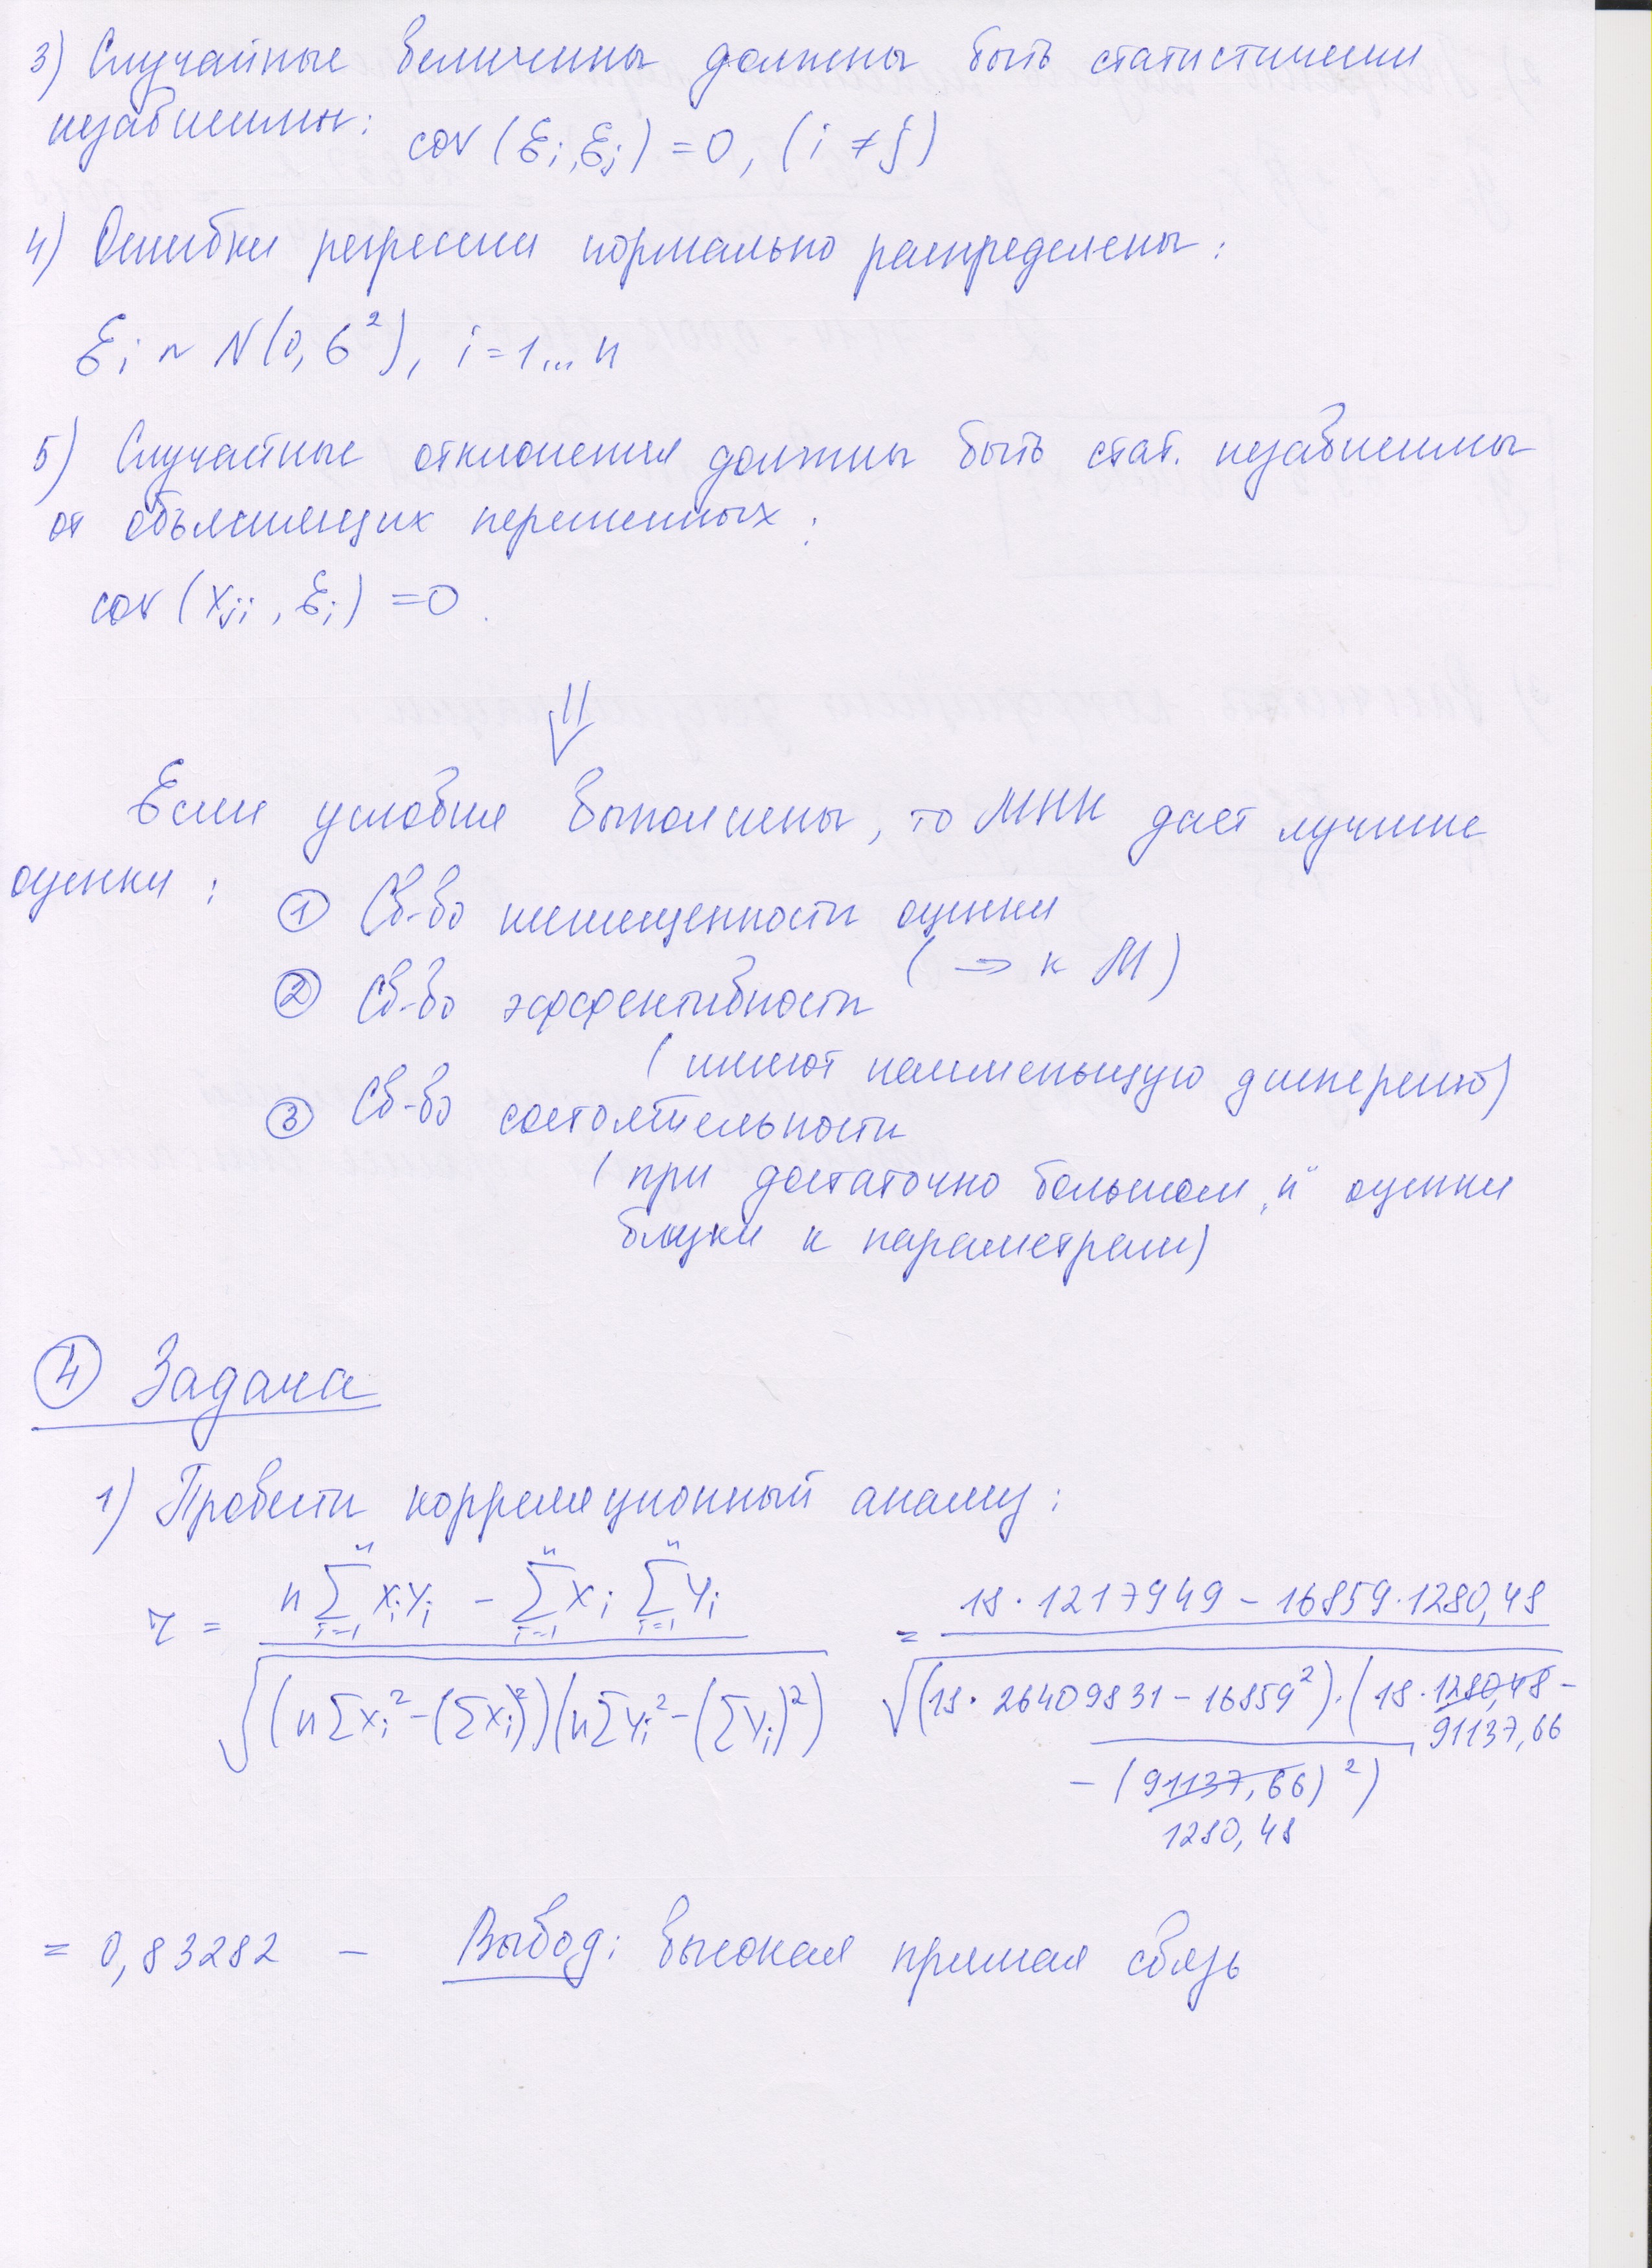 3) Случайные величины должны быть статистически
независимы: cov (ε_i, ε_j) = 0, (i ≠ j)
4) Ошибки регрессии нормально распределены:
ε_i ~ N(0, б²), i = 1 ... n
5) Случайные отклонения должны быть стат. независимы
от объясняющих переменных:
cov (x_ji, ε_i) = 0.
⇓
Если условия выполнены, то МНК дает лучшие
оценки:
① Св-во несмещенности оценки
(→ к М)
② Св-во эффективности
(имеют наименьшую дисперсию)
③ Св-во состоятельности
(при достаточно большом „n" оценки
близки к параметрам)
④ Задача
1) Провести корреляционный анализ:
r = (n Σ_{i=1}^{n} x_i y_i − Σ_{i=1}^{n} x_i Σ_{i=1}^{n} y_i) / √((n Σx_i² − (Σx_i)²)(n Σy_i² − (Σy_i)²)) = (18 · 1217949 − 16859 · 1280,48) / √((18 · 26409831 − 16859²) · (18 · ~~1280,48~~ 91137,66 −
− (~~91137,66~~ 1280,48)²)
= 0,83282 — Вывод: высокая прямая связь